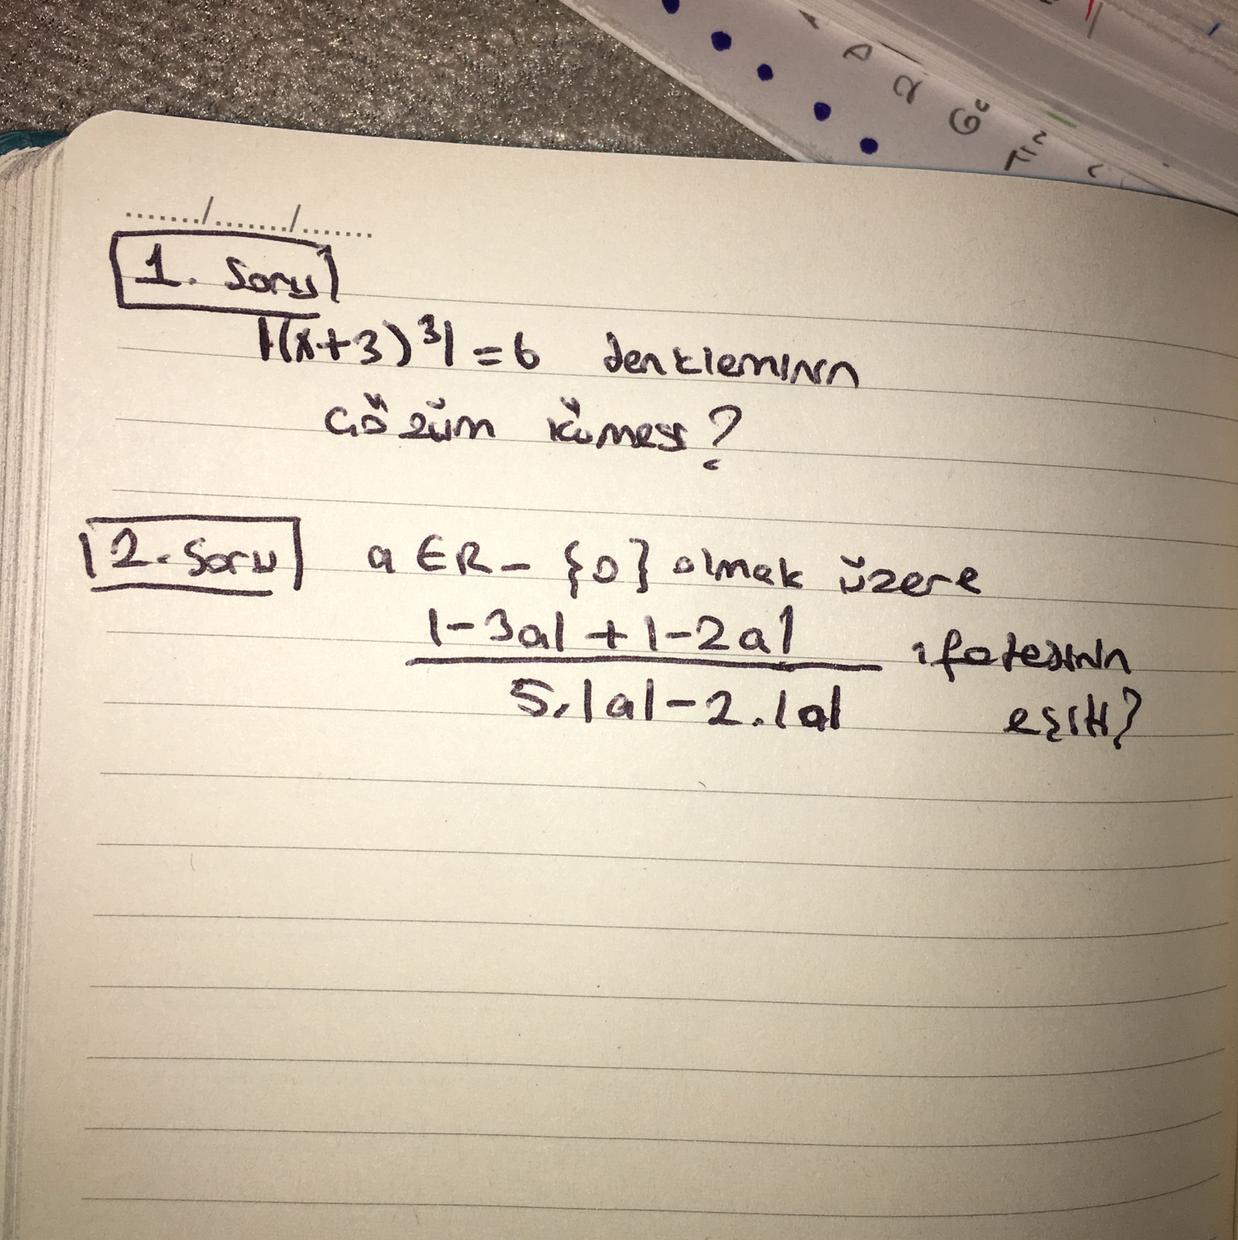 ......./......./.......
1. Soru
|(x+3)³| = 6 denkleminin
çözüm kümesi?
2. Soru a ∈ R - {0} olmak üzere
|-3a| + |-2a|
ifadesinin
5.|a| - 2.|a|
eşiti?